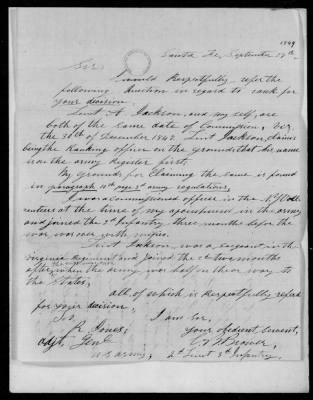 1849
Santa Fe, September 12th
Sir,
I would Respectfully refer the
following question in regard to rank for
your decision.
Lieut A Jackson, and my self, are
both of the same date of Commission, viz,
the 30th of December 1848 Lieut Jackson, claims
being the Ranking officer on the grounds that his name
is on the army Register first.
My grounds for Claiming the same is found
in paragraph page 3d army regulations,
I was a commissioned officer in the N.Y Vol-
unteers at the time of my appointment in the army
and joined the 3d Infantry three months before the
war was over with mexico.
Lieut Jackson was a sergeant in the
Virginia Regiment and joined the 3d two months
after, when the army was half on their way to
the States,
all of which is Respectfully referd
for your decision,
To,
I am Sir,
R Jones,
your obedient Servant,
Adjt. Genl
C D Brower,
U S army,
2d Lieut 3d Infantry.